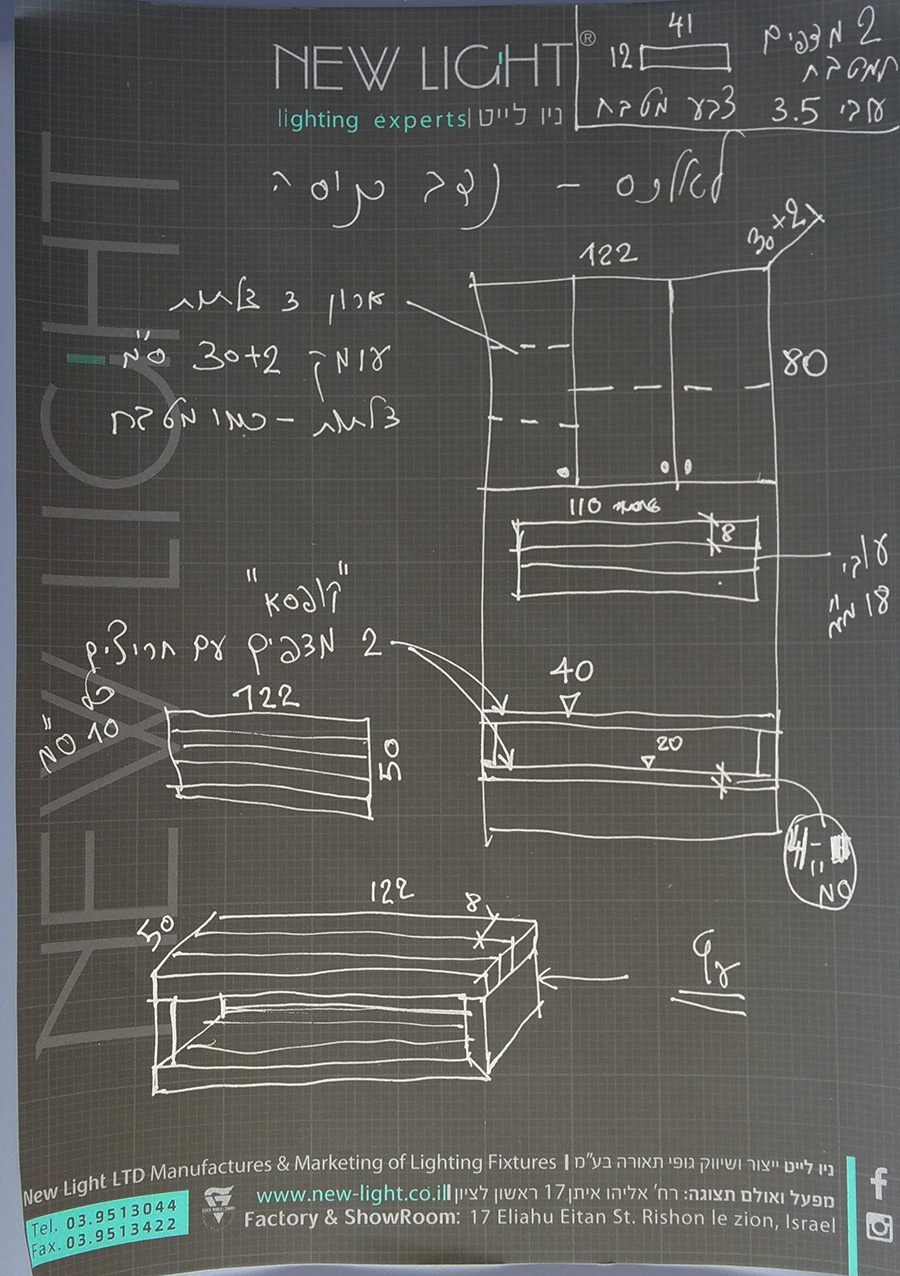 NEW LIGHT®
lighting experts | ניו לייט
41
12
2 מדפים
מטבח
עובי 3.5 צבע מטבח
122
30+2
ארון 3 דלתות
עומק 30+2 ס"מ
דלתות - כמו מטבח
80
110
8
עובי
18 מ"מ
"קופסא"
2 מדפים עם חריצים
כל
10 ס"מ
122
50
40
20
4
ס"מ
122
8
50
עץ
NEW LIGHT
New Light LTD Manufactures & Marketing of Lighting Fixtures | ניו לייט ייצור ושיווק גופי תאורה בע"מ
Tel. 03.9513044
Fax. 03.9513422
www.new-light.co.il | מפעל ואולם תצוגה: רח' אליהו איתן 17 ראשון לציון
Factory & ShowRoom: 17 Eliahu Eitan St. Rishon le zion, Israel